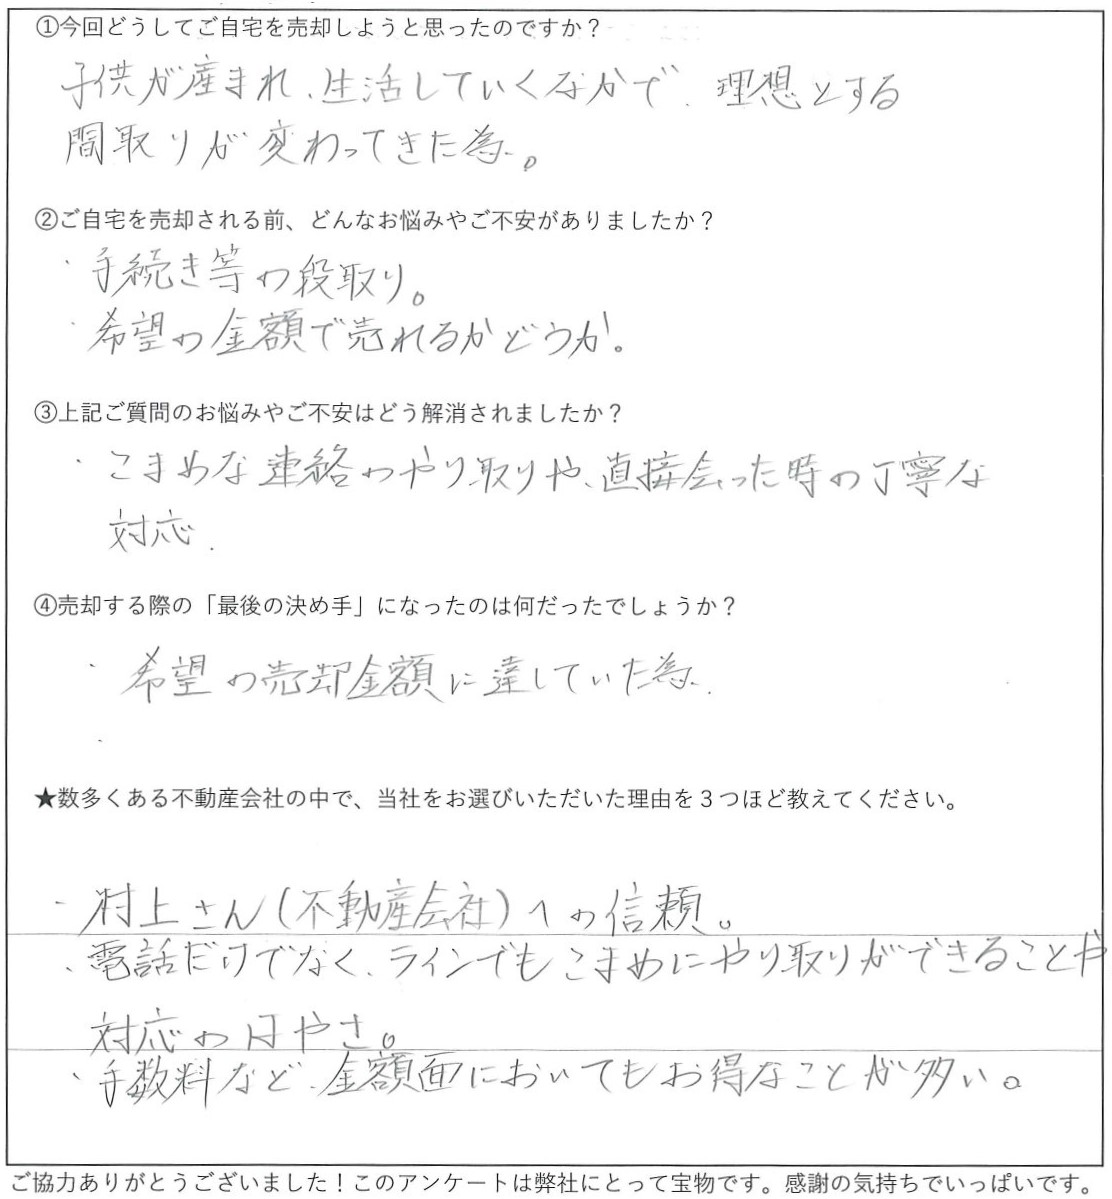 ①今回どうしてご自宅を売却しようと思ったのですか?
子供が産まれ、生活していくなかで、理想とする
間取りが変わってきた為。
②ご自宅を売却される前、どんなお悩みやご不安がありましたか?
・手続き等の段取り。
・希望の金額で売れるかどうか。
③上記ご質問のお悩みやご不安はどう解消されましたか?
・こまめな連絡のやり取りや、直接会った時の丁寧な
対応.
④売却する際の「最後の決め手」になったのは何だったでしょうか?
・希望の売却金額に達していた為.
・
★数多くある不動産会社の中で、当社をお選びいただいた理由を3つほど教えてください。
・村上さん(不動産会社)への信頼。
・電話だけでなく、ラインでもこまめにやり取りができることや
対応のはやさ。
・手数料など、金額面においてもお得なことが多い。
ご協力ありがとうございました!このアンケートは弊社にとって宝物です。感謝の気持ちでいっぱいです。